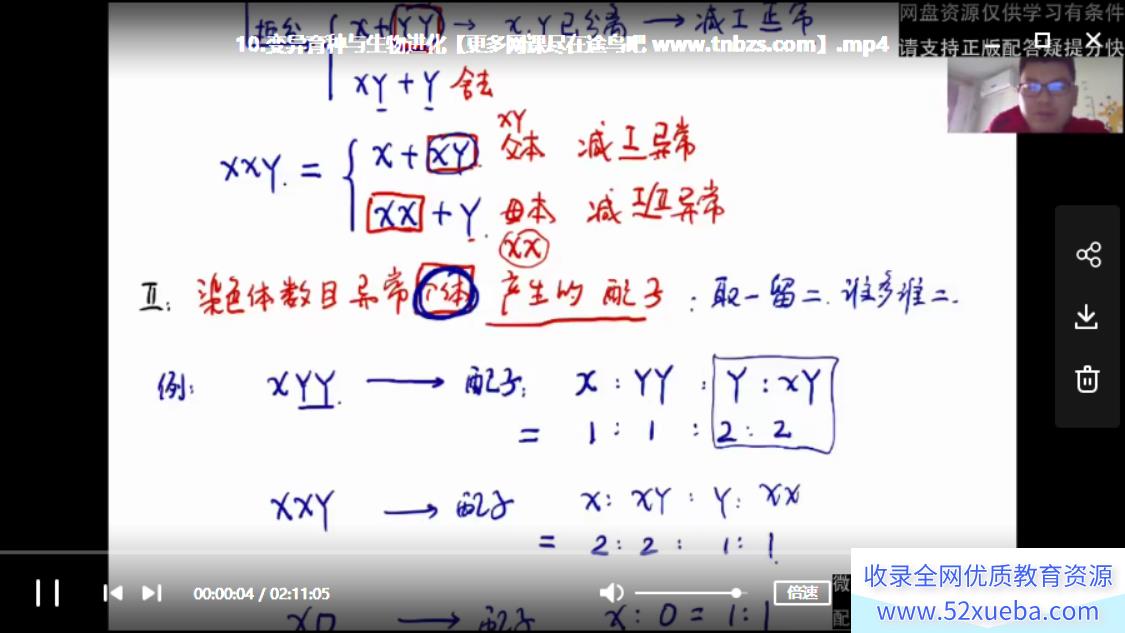 网盘资源仅供学习有条件
请支持正版配答疑提分快
10.变异育种与生物进化【更多网课尽在途鸟吧 www.tnbzs.com】.mp4
X+YY → X.Y已分离 → 减I正常
XY + Y 舍去
XY
XXY. = X + XY 父本 减I异常
XX + Y. 母本 减I/II异常
XX
II: 染色体数目异常个体 产生的配子: 取一留二. 谁多谁二.
例: XYY. → 配子: X : YY : Y : XY
= 1 : 1 : 2 : 2
XXY → 配子 X : XY : Y : XX
= 2 : 2 : 1 : 1.
XO → 配子 X : O = 1 : 1
00:00:04 / 02:11:05
倍速
微
配
收录全网优质教育资源
www.52xueba.com